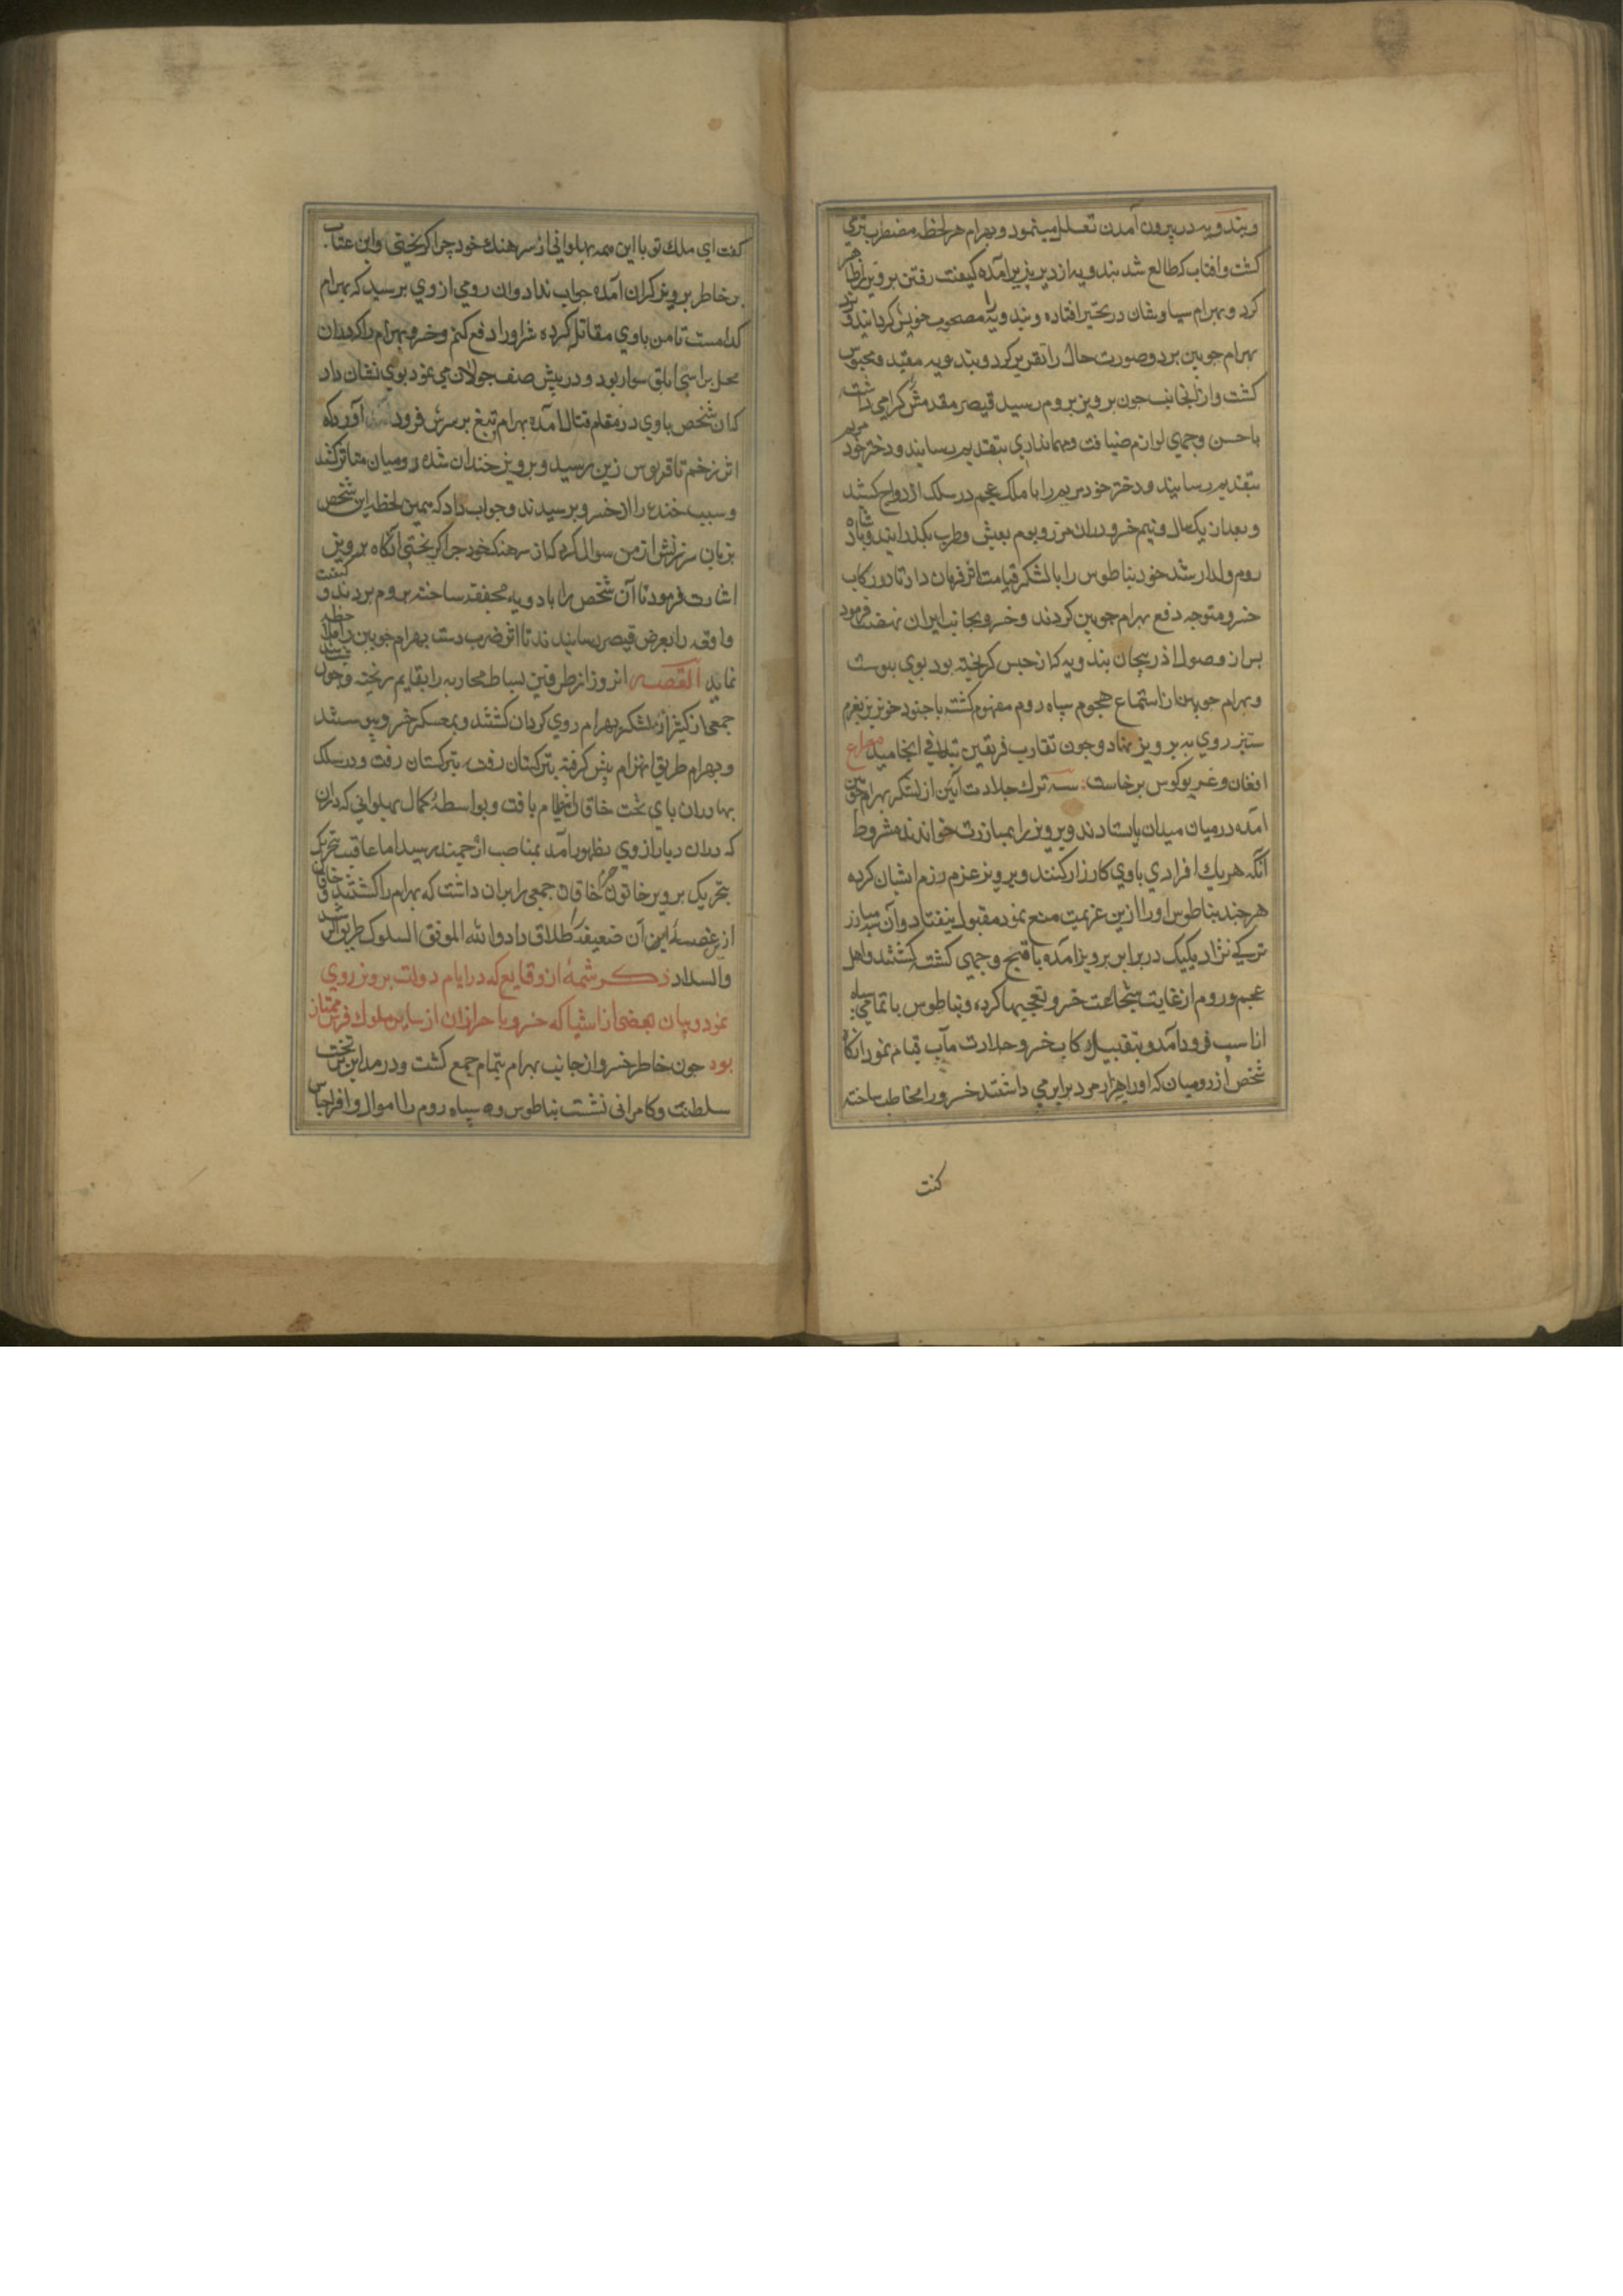 و بندویه در بیرون آمدن تعلل مینمود و بهرام هر لحظه مضطرب تری
کشت و افتاب که طالع شد بندویه از دیر بزیر آمده کیفیت رفتن برویز ظاهر
کرد و بهرام سیاوشان در تحیر افتاده و بندویه را مصحوب خویش کردانید و نزد
بهرام جوبین برد و صورت حال را تقریر کرد و بندویه مقید و محبوس
کشت و از انجانب جون برویز بروم رسید قیصر مقدمش کرامی داشت
باحسن وجهی لوازم ضیافت و مهمانداری بتقدیم رسانید و دختر خود مریم
بتقدیم رسانید و دختر خود مریم را با ملک عجم در سلک ازدواج کشید
و بعد از یک سال و نیم خسرو دران مرز و بوم بعیش و طرب بکذرانید و بادشاه
روم ولد ارشد خود بناطوس را با لشکر قیامت اثر فرمان داد تا در رکاب
خسرو متوجه دفع بهرام جوبین کردند و خسرو بجانب ایران نهضت فرمود
بس از وصول اذربیجان بندویه که از حبس کریخته بود بوی بیوست
و بهرام جوبین از استماع هجوم سپاه روم مفهوم کشته با جنود خونریز بعزم
ستیز روی به برویز نهاد و جون تقارب فریقین بتلاقی انجامید مصراع
افغان و غریو کوس برخاست سه ترک جلادت آئین از لشکر بهرام جوبین
امده درمیان میدان بایستادند و برویز را بمبارزت خواندند مشروط
انکه هریک افرادی باوی کارزار کنند و برویز عزم رزم ایشان کرده
هرجند بناطوس او را ازین عزیمت منع نمود مقبول نیفتاد و آن سه مبارز
ترکی نژاد یکیک در برابر برویز آمده باقبح وجهی کشته کشتند و اهل
عجم و روم از غایت شجاعت خسرو تعجبها کرده و بناطوس با تمامی سپاه
از اسب فرود آمد و بتقبیل رکاب خسرو جلادت مآب قیام نمود انکاه
شخص از رومیان که او را بهزار مرد برابر می داشتند خسرو را مخاطب ساخته
کفت
کفت ای ملک تو با این همه بهلوانی از سرهنک خود چرا کریختی و این عتاب
بر خاطر برویز کران آمده جواب نداد و ان رومی از وی برسید که بهرام
کدامست تا من باوی مقاتله کرده شر او را دفع کنم و خسرو بهرام را که دران
محل بر اسبی ابلق سوار بود و در پیش صف جولان می نمود بوی نشان داد
کان شخص باوی در مقام قتال آمده بهرام تیغ بر سرش فرود آورد که
اثر زخم تا قربوس زین رسید و برویز خندان شده رومیان متاثر کشتند
و سبب خنده را از خسرو برسیدند و جواب داد که همین لحظه این شخص
بزبان سرزنش از من سوال کرد که از سرهنک خود جرا کریختی آنکاه برویز
اشارت فرمود تا آن شخص را بادویه مجففه ساخته بروم بردند و کیفیت
واقعه را بعرض قیصر رسانیدند تا اثر ضرب دست بهرام جوبین را ملاحظه
نماید القصه انروز از طرفین بساط محاربه را بقایم ریخته و چون شب شد
جمعی کثیر از لشکر بهرام روی کردان کشتند و بمعسکر خسرو پیوستند
و بهرام طریق انهزام پیش کرفته بترکستان رفت بترکستان رفت و در سلک
بهادران بای تخت خاقان انتظام یافت و بواسطهٔ کمال بهلوانی که دران
که دران دیار از وی بظهور آمد بمناصب ارجمند رسید اما عاقبت تحریک
بتحریک برویز خاتون خاقان جمعی را بران داشت که بهرام را کشتند و خاقان
از غصهٔ این آن ضعیفه را طلاق داد والله الموفق السلوک طریق الرشد
والسداد ذکر شمهٔ از وقایع که در ایام دولت برویز روی
نمود و بیان بعضی از اشیا که خسرو باحراز ان از سایر ملوک فرس ممتاز
بود جون خاطر خسرو از جانب بهرام بتمام جمع کشت و در مداین بر تخت
سلطنت و کامرانی نشست بناطوس و سپاه روم را اموال وافر اجناس